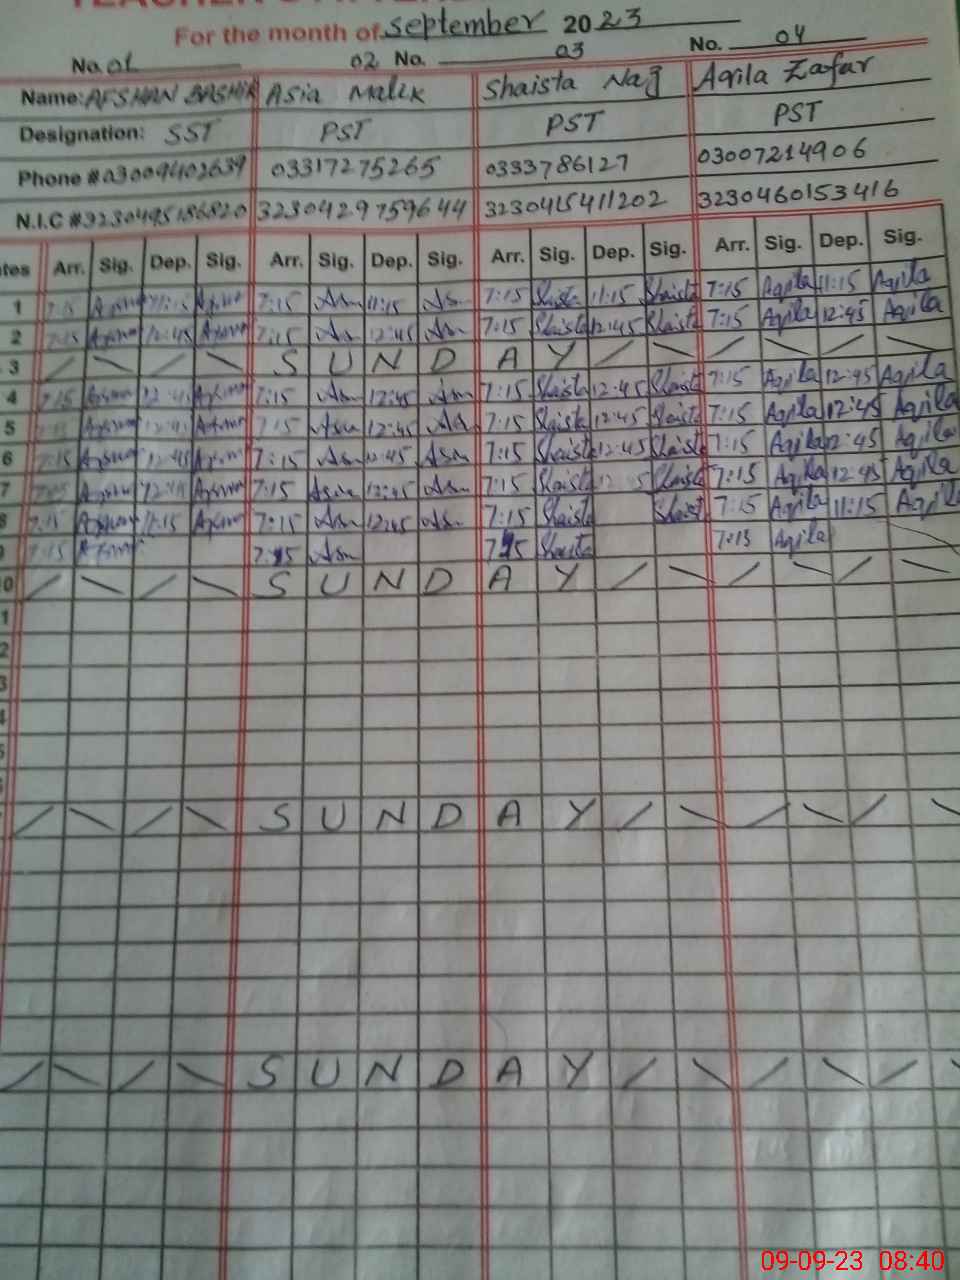 For the month of September 2023
No. 01 02 No. 03 No. 04
Name: AFSHAN BASHIR Asia Malik Shaista Naz Aqila Zafar
Designation: SST PST PST PST
Phone # 03009402639 03317275265 0333786127 03007214906
N.I.C # 3230495186820 3230429759644 3230415411202 3230460153416
Arr. Sig. Dep. Sig. Arr. Sig. Dep. Sig. Arr. Sig. Dep. Sig. Arr. Sig. Dep. Sig.
1 7:15 11:15 7:15 Asn 11:15 Asn 7:15 Shaista 11:15 Shaista 7:15 Aqila 11:15 Aqila
2 7:15 12:45 7:15 Asn 12:45 Asn 7:15 Shaista 12:45 Shaista 7:15 Aqila 12:45 Aqila
3 S U N D A Y
4 7:15 7:15 Asn 12:45 Asn 7:15 Shaista 12:45 Shaista 7:15 Aqila 12:45 Aqila
5 7:15 Asn 12:45 Asn 7:15 Shaista 12:45 Shaista 7:15 Aqila 12:45 Aqila
6 7:15 12:45 7:15 Asn 12:45 Asn 7:15 Shaista 12:45 Shaista 7:15 Aqila 12:45 Aqila
7 7:15 Asn 12:45 Asn 7:15 Shaista Shaista 7:15 Aqila 12:45 Aqila
8 7:15 11:15 7:15 Asn 12:45 Asn 7:15 Shaista Shaista 7:15 Aqila 11:15 Aqila
9 7:15 7:15 Asn 7:15 Shaista 7:15 Aqila
0 S U N D A Y
1
2
3
4
5
S U N D A Y
S U N D A Y
09-09-23 08:40